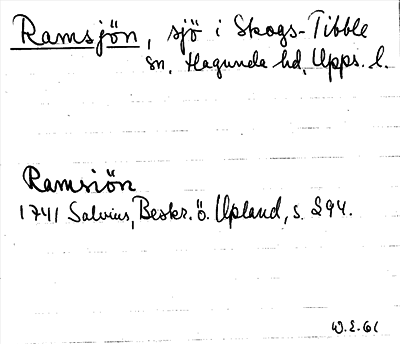 Ramsjön, sjö i Skogs-Tibble
sn, Hagunda hd, Upps. l.
Ramsiön
1741 Salvius, Beskr. ö. Upland, s. 294.
W.E. 61